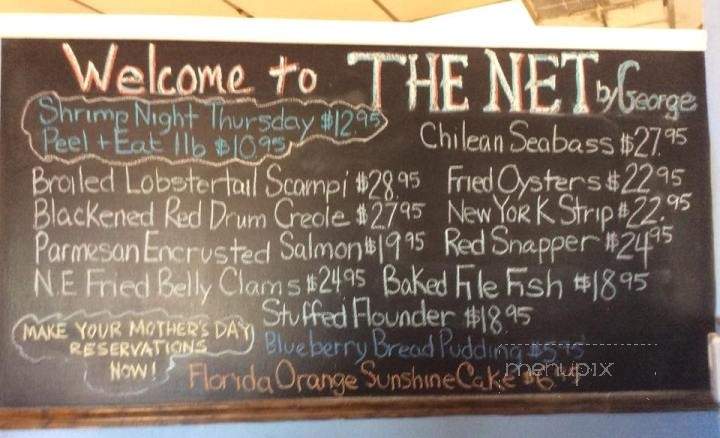 Welcome to THE NET by George
Shrimp Night Thursday $12.95
Peel + Eat 1lb $10.95
Chilean Seabass $27.95
Broiled Lobstertail Scampi $28.95 Fried Oysters $22.95
Blackened Red Drum Creole $27.95 New York Strip $22.95
Parmesan Encrusted Salmon $19.95 Red Snapper $24.95
N.E Fried Belly Clams $24.95 Baked File Fish $18.95
Stuffed Flounder $18.95
MAKE YOUR MOTHER'S DAY
RESERVATIONS
NOW!
Blueberry Bread Pudding
Florida Orange Sunshine Cake
menupix